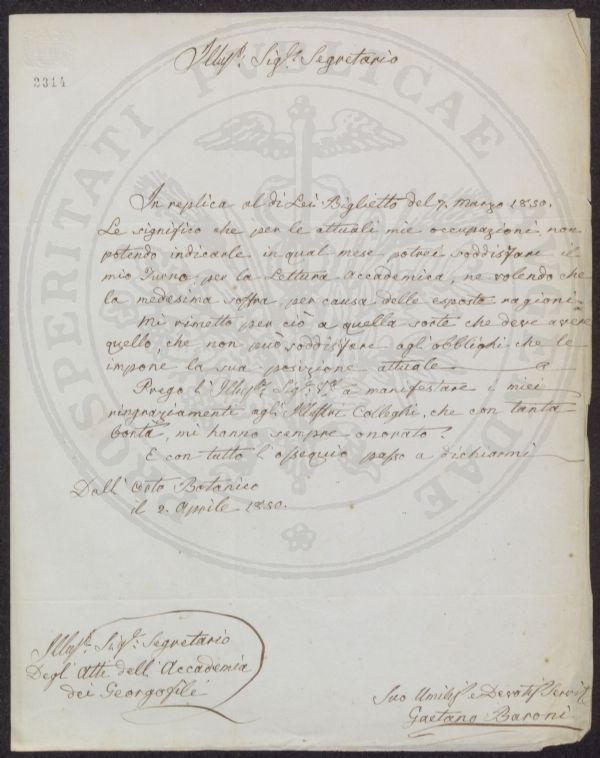 Illust.e Sig.r Segretario
2314
PROSPERITATI PUBLICAE AUGENDAE
In replica al di Lei Biglietto del 7. Marzo 1850.
Le significo che per le attuali mie occupazioni non
potendo indicarle in qual mese potrei soddisfare il
mio Turno per la Lettura Accademica, ne volendo che
la medesima soffra per causa delle esposte ragioni
mi rimetto per ciò a quella sorte che deve avere
quello, che non può soddisfere agli obblighi che le
impone la sua posizione attuale
Prego l'Illust.e Sig.r a manifestare i miei
ringraziamenti agli Illustri Colleghi, che con tanta
bontà, mi hanno sempre onorato.
E con tutto l'ossequio passo a dichiarmi
Dall' Orto Botanico
il 2. Aprile 1850.
Illust.e Sig.r Segretario
Degl' Atti dell' Accademia
dei Georgofili
Suo Umilis. e Devotis. Servit.
Gaetano Baroni